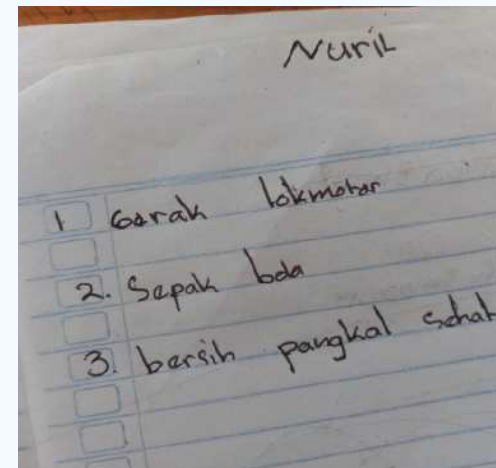 Nuril
1 Garak lokmotor
2. Sepak bola
3. bersih pangkal sehat